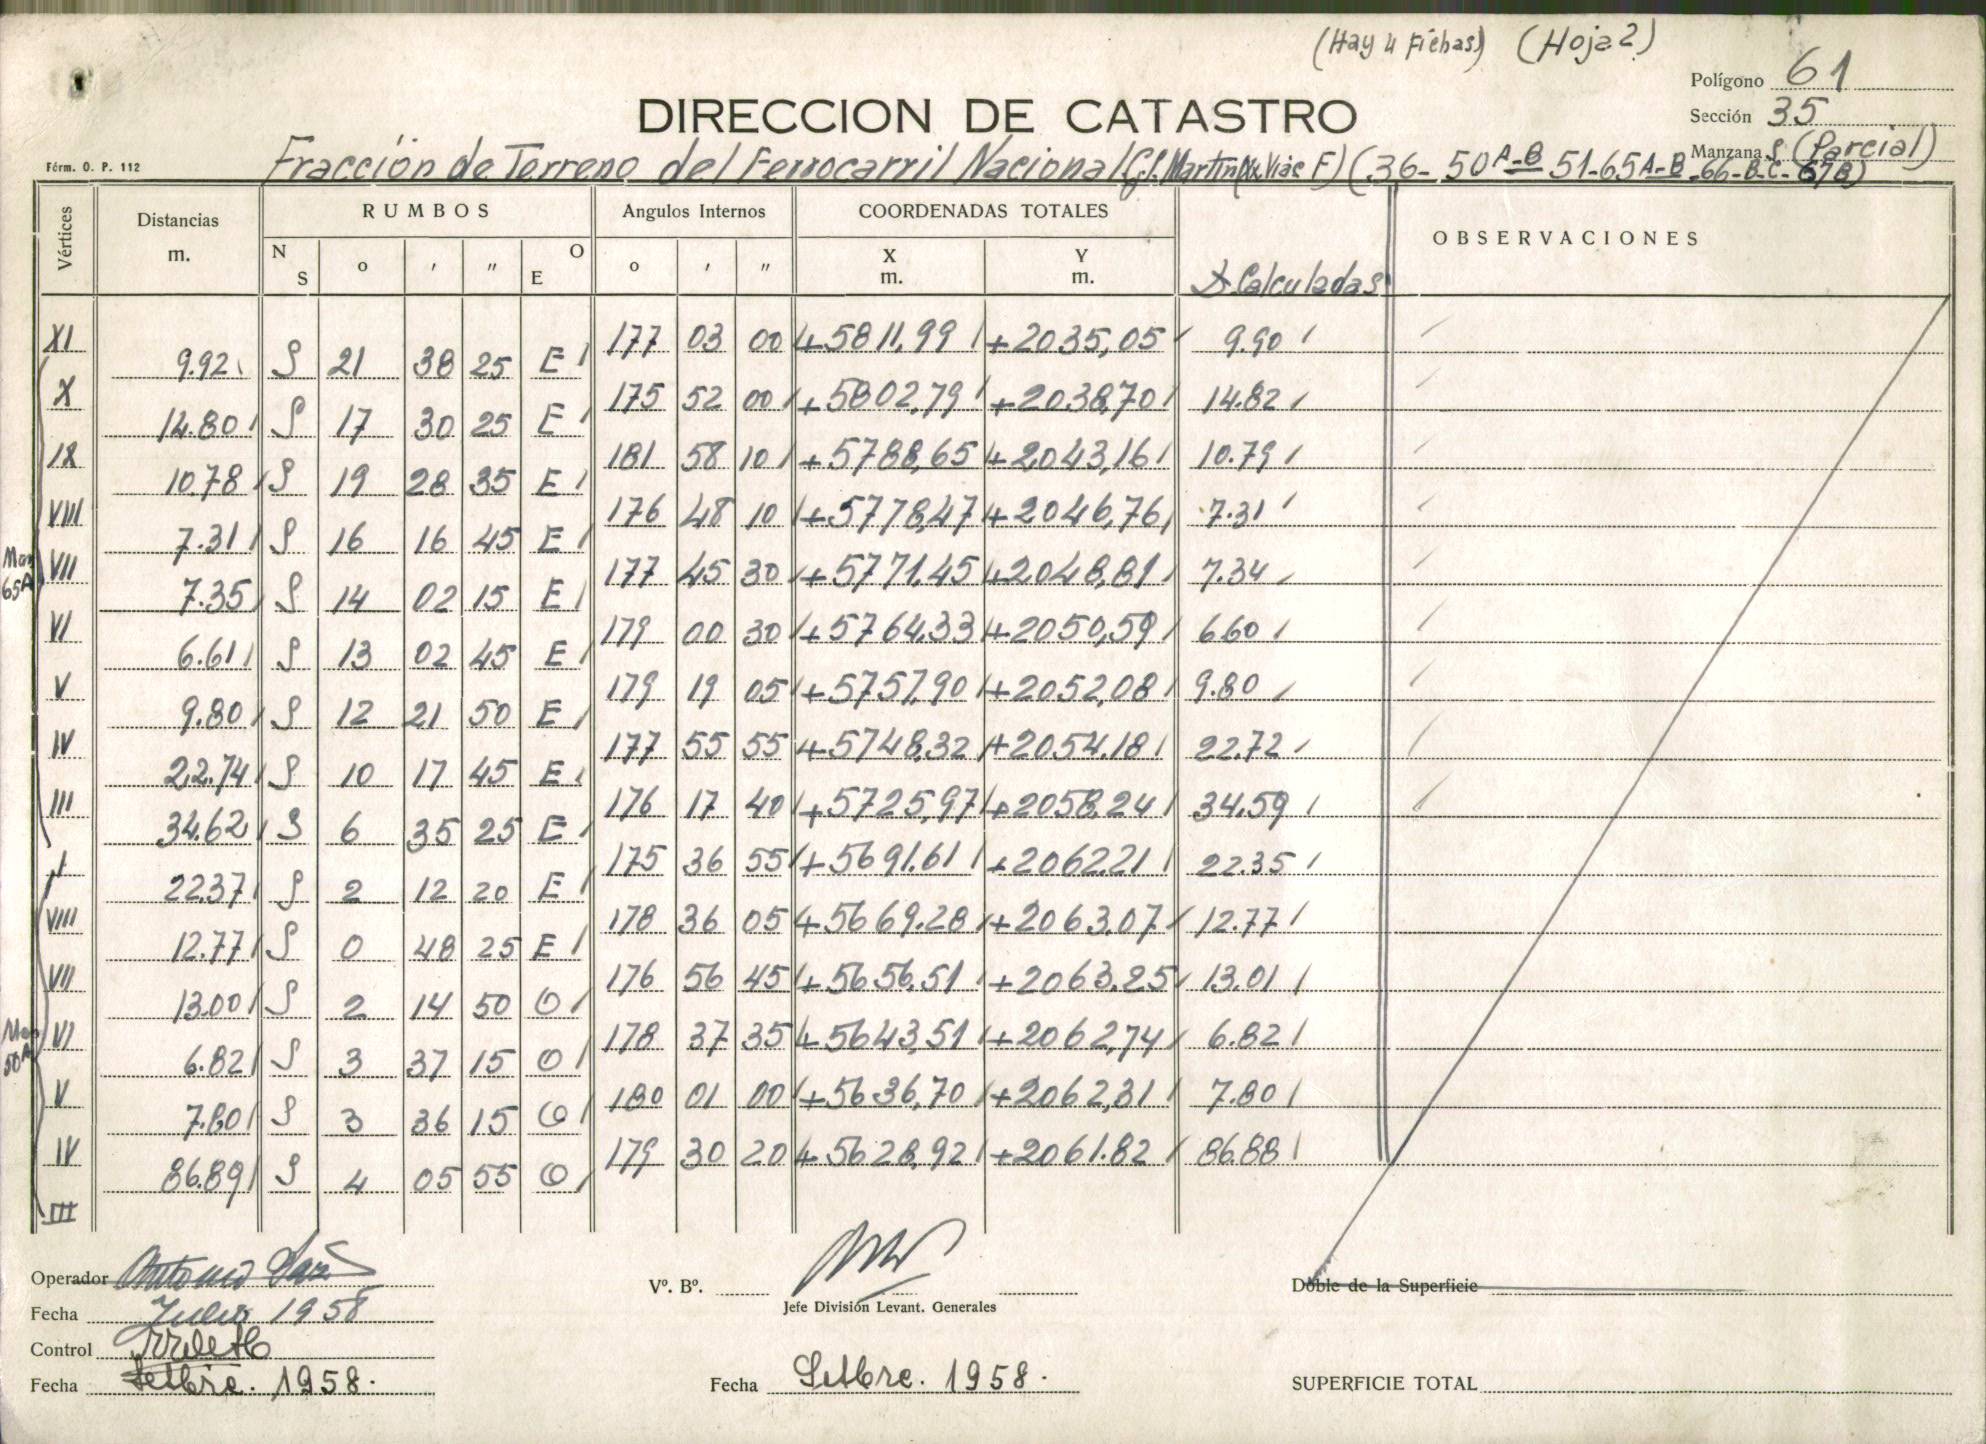 (Hay 4 Fichas) (Hoja 2)
Polígono 61
DIRECCION DE CATASTRO
Sección 35
Manzana S (Parcial)
Fórm. O. P. 112
Fracción de Terreno del Ferrocarril Nacional G. S. Martín (Ex Viás F) (36-50A-B 51-65A-B-66-B-C-67B)
Vértices Distancias m. RUMBOS N S ° ′ ″ O E Angulos Internos ° ′ ″ COORDENADAS TOTALES X m. Y m. Calculadas OBSERVACIONES
XI 177 03 00 +5811,99 +2035,05 9.90
9.92 S 21 38 25 E
X 175 52 00 +5802,79 +2038,70 14.82
14.80 S 17 30 25 E
IX 181 58 10 +5788,65 +2043,16 10.79
10.78 S 19 28 35 E
VIII 176 48 10 +5778,47 +2046,76 7.31
7.31 S 16 16 45 E
Man 65A
VII 177 45 30 +5771.45 +2048,81 7.34
7.35 S 14 02 15 E
VI 179 00 30 +5764,33 +2050,59 6.60
6.61 S 13 02 45 E
V 179 19 05 +5757,90 +2052,08 9.80
9.80 S 12 21 50 E
IV 177 55 55 +5748,32 +2054.18 22.72
22.74 S 10 17 45 E
III 176 17 40 +5725,97 +2058,24 34.59
34.62 S 6 35 25 E
175 36 55 +5691.61 +2062.21 22.35
22.37 S 2 12 20 E
VIII 178 36 05 +5669.28 +2063.07 12.77
12.77 S 0 48 25 E
VII 176 56 45 +5656,51 +2063.25 13.01
13.00 S 2 14 50 O
Man 50A
VI 178 37 35 +5643,51 +2062,74 6.82
6.82 S 3 37 15 O
V 180 01 00 +5636,70 +2062,31 7.80
7.80 S 3 36 15 O
IV 179 30 20 +5628,92 +2061.82 86.88
86.89 S 4 05 55 O
III
Operador Antonio
Vº. Bº.
Doble de la Superficie
Jefe División Levant. Generales
Fecha Julio 1958
Control
Fecha Setbre. 1958.
Fecha Setbre. 1958.
SUPERFICIE TOTAL